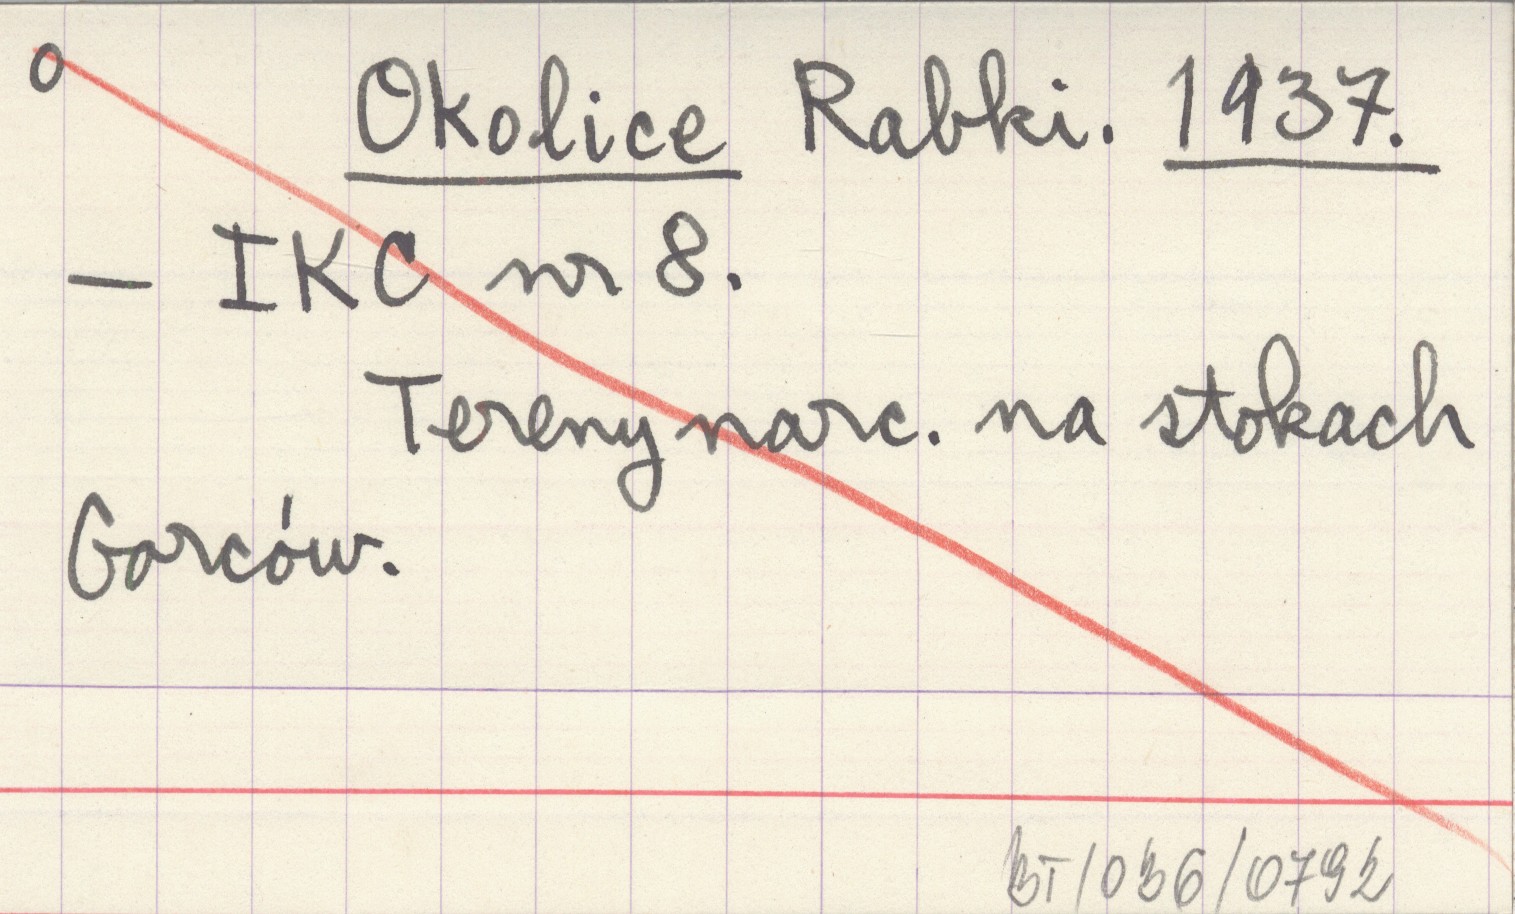 O
Okolice Rabki. 1937.
— IKC nr 8.
Tereny narc. na stokach
Gorców.
BT/036/0792